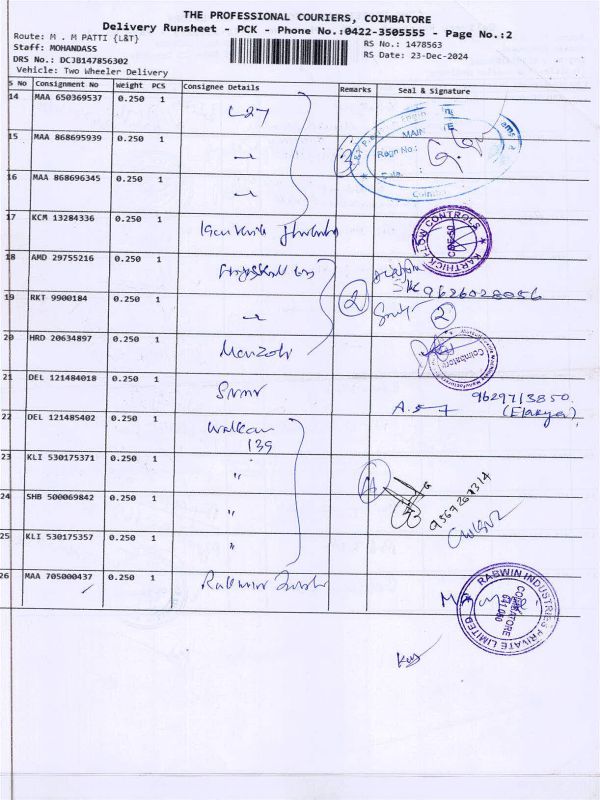 THE PROFESSIONAL COURIERS, COIMBATORE
Delivery Runsheet - PCK - Phone No.:0422-3505555 - Page No.:2
Route: M . M PATTI {L&T}
RS No.: 1478563
Staff: MOHANDASS
RS Date: 23-Dec-2024
DRS No.: DCJB147856302
Vehicle: Two Wheeler Delivery
S No Consignment No Weight PCS Consignee Details Remarks Seal & Signature
14 MAA 650369537 0.250 1 L-27
15 MAA 868695939 0.250 1 "
3
MAIN
Regn No.:
Date :
16 MAA 868696345 0.250 1 "
17 KCM 13284336 0.250 1
KARTHICK FLOW CONTROLS
CBE-50
18 AMD 29755216 0.250 1
2 9626028056
19 RKT 9900184 0.250 1 "
2
20 HRD 20634897 0.250 1
Coimbatore
21 DEL 121484018 0.250 1
9629713850
(Elakya)
22 DEL 121485402 0.250 1
139
23 KLI 530175371 0.250 1 "
4
24 SHB 500069842 0.250 1 "
25 KLI 530175357 0.250 1 "
26 MAA 705000437 0.250 1
RABWIN INDUSTRIES PRIVATE LIMITED
COIMBATORE